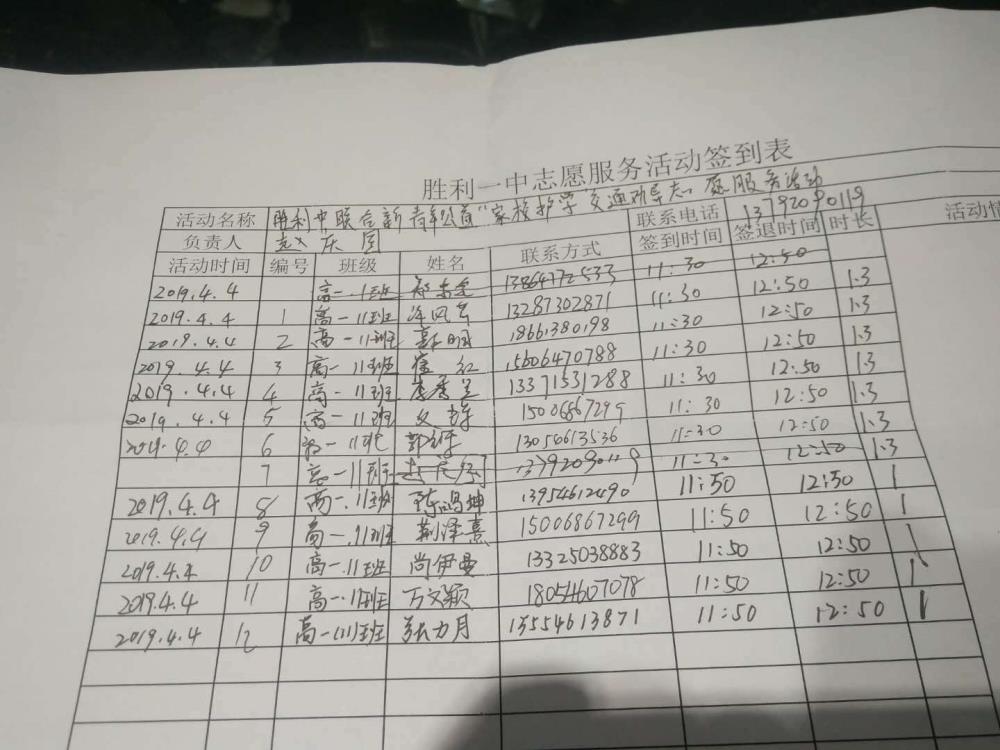 胜利一中志愿服务活动签到表
活动名称 胜利一中联合新青年公益"家校护学 交通劝导志愿服务活动
负责人 赵庆国 联系电话 13792090119
活动时间 编号 班级 姓名 联系方式 签到时间 签退时间 时长 活动情
2019.4.4 高一.11班 13864772533 11:30 12:50
2019.4.4 1 高一.11班 13287302871 11:30 12:50 1.3
2019.4.4 2 高一.11班 郭明 18661380198 11:30 12:50 1.3
2019.4.4 3 高一.11班 崔红 15606470788 11:30 12:50 1.3
2019.4.4 4 高一.11班 13371531288 11:30 12:50 1.3
2019.4.4 5 高一.11班 15006867299 11:30 12:50 1.3
2019.4.4 6 11班 13054613536 11:30 12:50 1.3
7 高一11班 13792090119 11:30 12:50 1.3
2019.4.4 8 高一.11班 陈鸿坤 13954612490 11:50 12:50 1
2019.4.4 9 高一.11班 荆泽熹 15006867299 11:50 12:50 1
2019.4.4 10 高一.11班 尚伊曼 13325038883 11:50 12:50 1
2019.4.4 11 高一.11班 万文颖 18054607078 11:50 12:50 1
2019.4.4 12 高一(11)班 张力月 13554613871 11:50 12:50 1